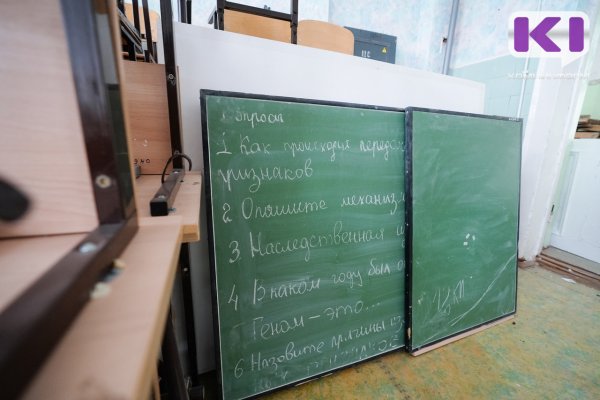 KI
Вопросы
1 Как происходит передач
признаков
2 Опишите механизм
3 Наследственная и
4 В каком году был о
Геном – это...
6 Назовите причины